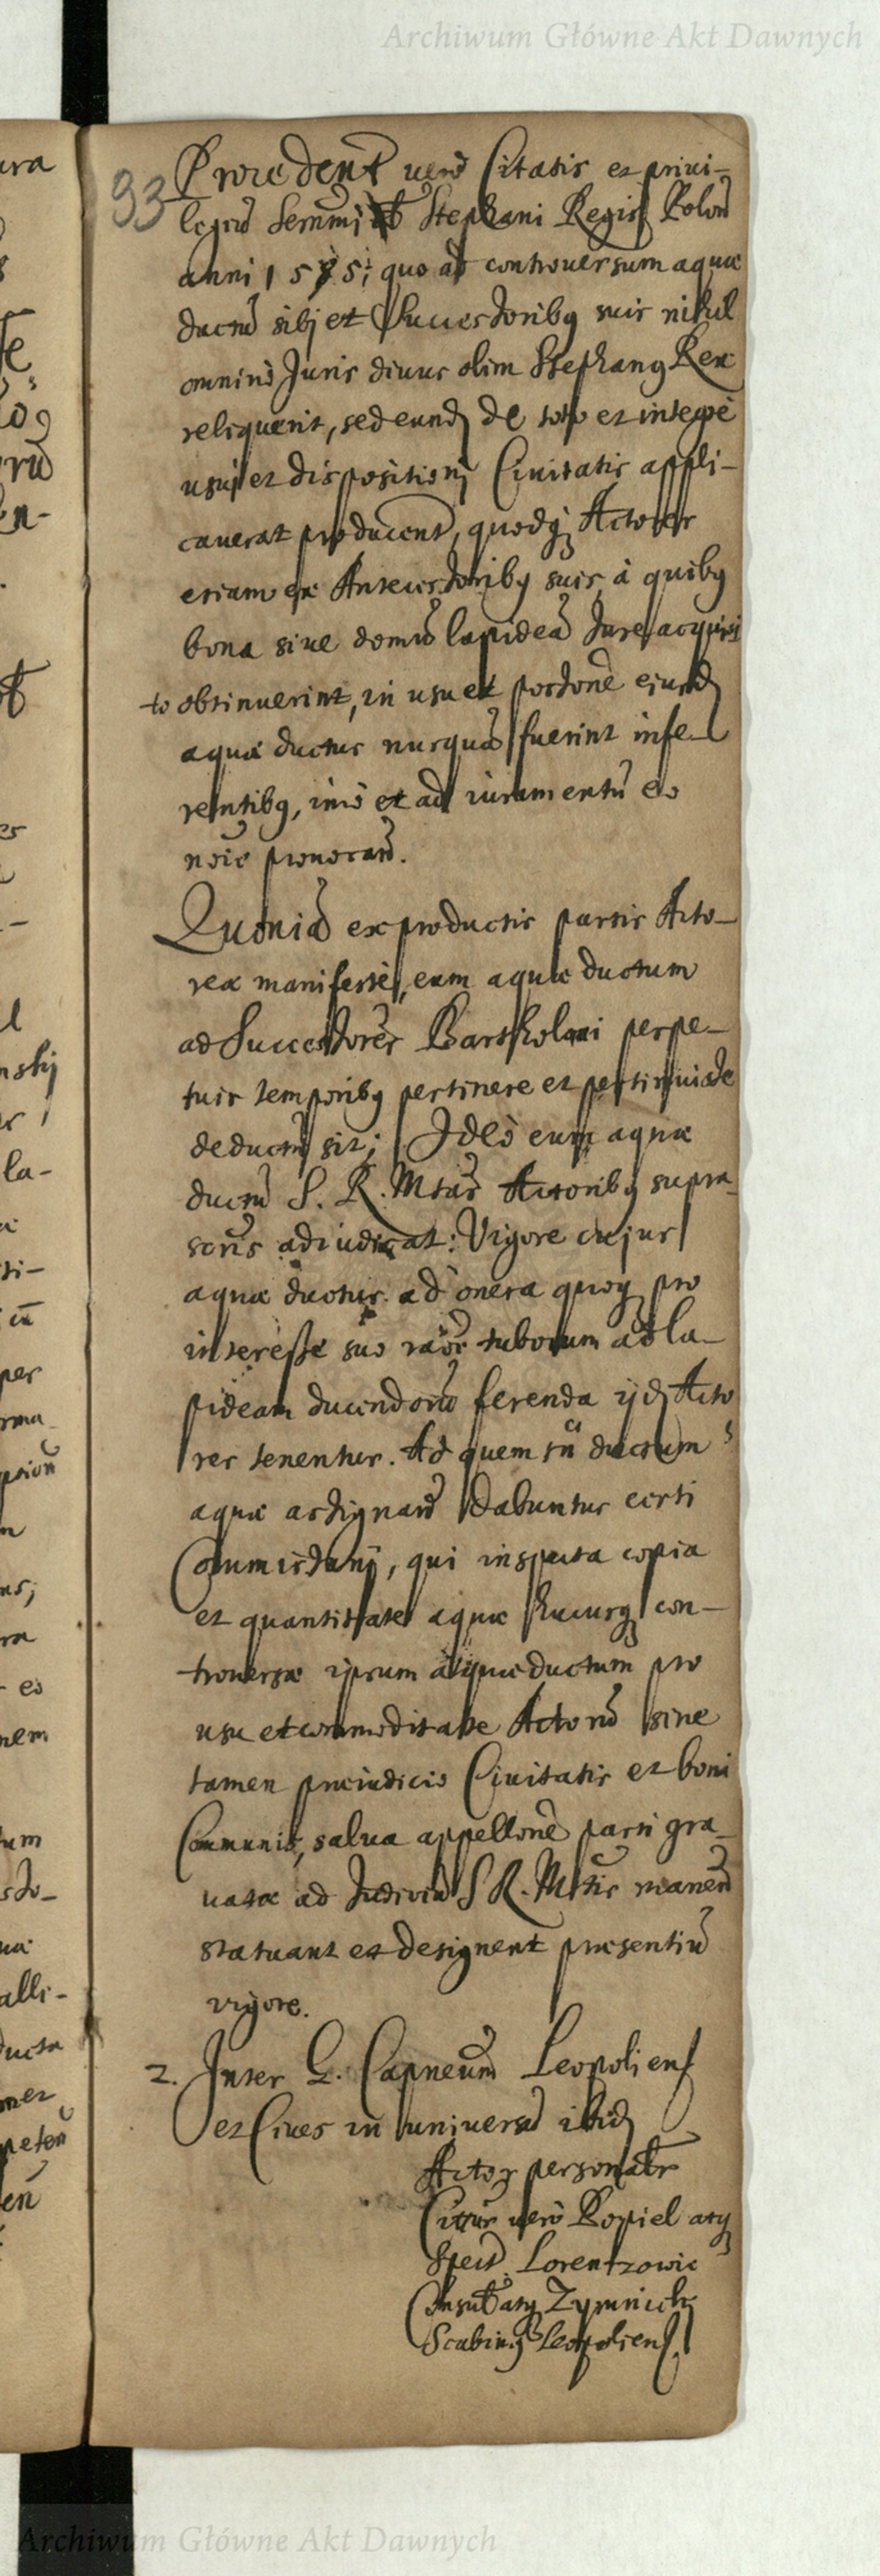 Archiwum Główne Akt Dawnych
93
Procedent vero Citatis et privi-
legiū Serenmi Stephani Regis Polon̄
anni 1585; quo ad controversum aquæ
ductū sibj et Successoribq suis nihil
omninò Juris divus olim Stephanq Rex
reliquerit, sed eund de toto et integrè
usuj et dispositionj Civitatis appli-
caverat producent, quodq; Actores
etiam ex Antecessoribq suis, à quibq
bona sive domū lapideā Jure acquisi
to obtinuerint, in usu et possone ejusd
aquæ ductus nusquā fuerint infe-
rentibq, imò et ad iuramentū eo
noie provocarō.
Quoniā ex productis partis Acto-
reæ manifestè, eum aquæ ductum
ad Successores Bartholomi perpe-
tuis temporibq pertinere et pertinuisse
deductū sit; Ideò eum aquæ
ductū S. R. Mtas Actoribq supra-
scris adiudicat: Vigore cujus
aquæ ductus ad onera quoq pro
interesse suo raōe tuborum ad la-
pideam ducendorū ferenda ijd Acto
res tenentur. Ad quem tn̄ ductum
aquæ assignan̄d dabuntur certi
Commissarij, qui inspecta copia
et quantitate aquæ hucusq con-
troversæ ipsum aquæductum pro
usu et commoditate Actorū sine
tamen præiudicio Civitatis et boni
Communis, salva appellonè parti gra-
vatæ ad Judiciū S R. Mtis manen̄
statuant et designent præsentiū
vigore.
2. Inter G. Capneum Leopoliens
et Cives in universū ibid
Actor personatr
Citus vero Kopiel atq
Spect. Lorentzowic
Consul atq Zymnich
Scabinq Leopoliens.
Archiwum Główne Akt Dawnych